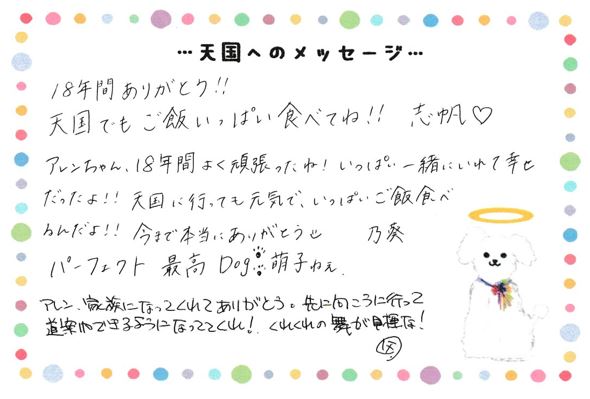 …天国へのメッセージ…
18年間ありがとう!!
天国でもご飯いっぱい食べてね!! 志帆♡
アレンちゃん、18年間よく頑張ったね!いっぱい一緒にいれて幸せ
だったよ!! 天国に行っても元気で、いっぱいご飯食べ
るんだよ!! 今まで本当にありがとう 乃葵
パーフェクト 最高 Dog 萌子ねぇ.
アレン、家族になってくれてありがとう。先に向こうに行って
道案内できるようになっててくれ! くれぐれの が な!